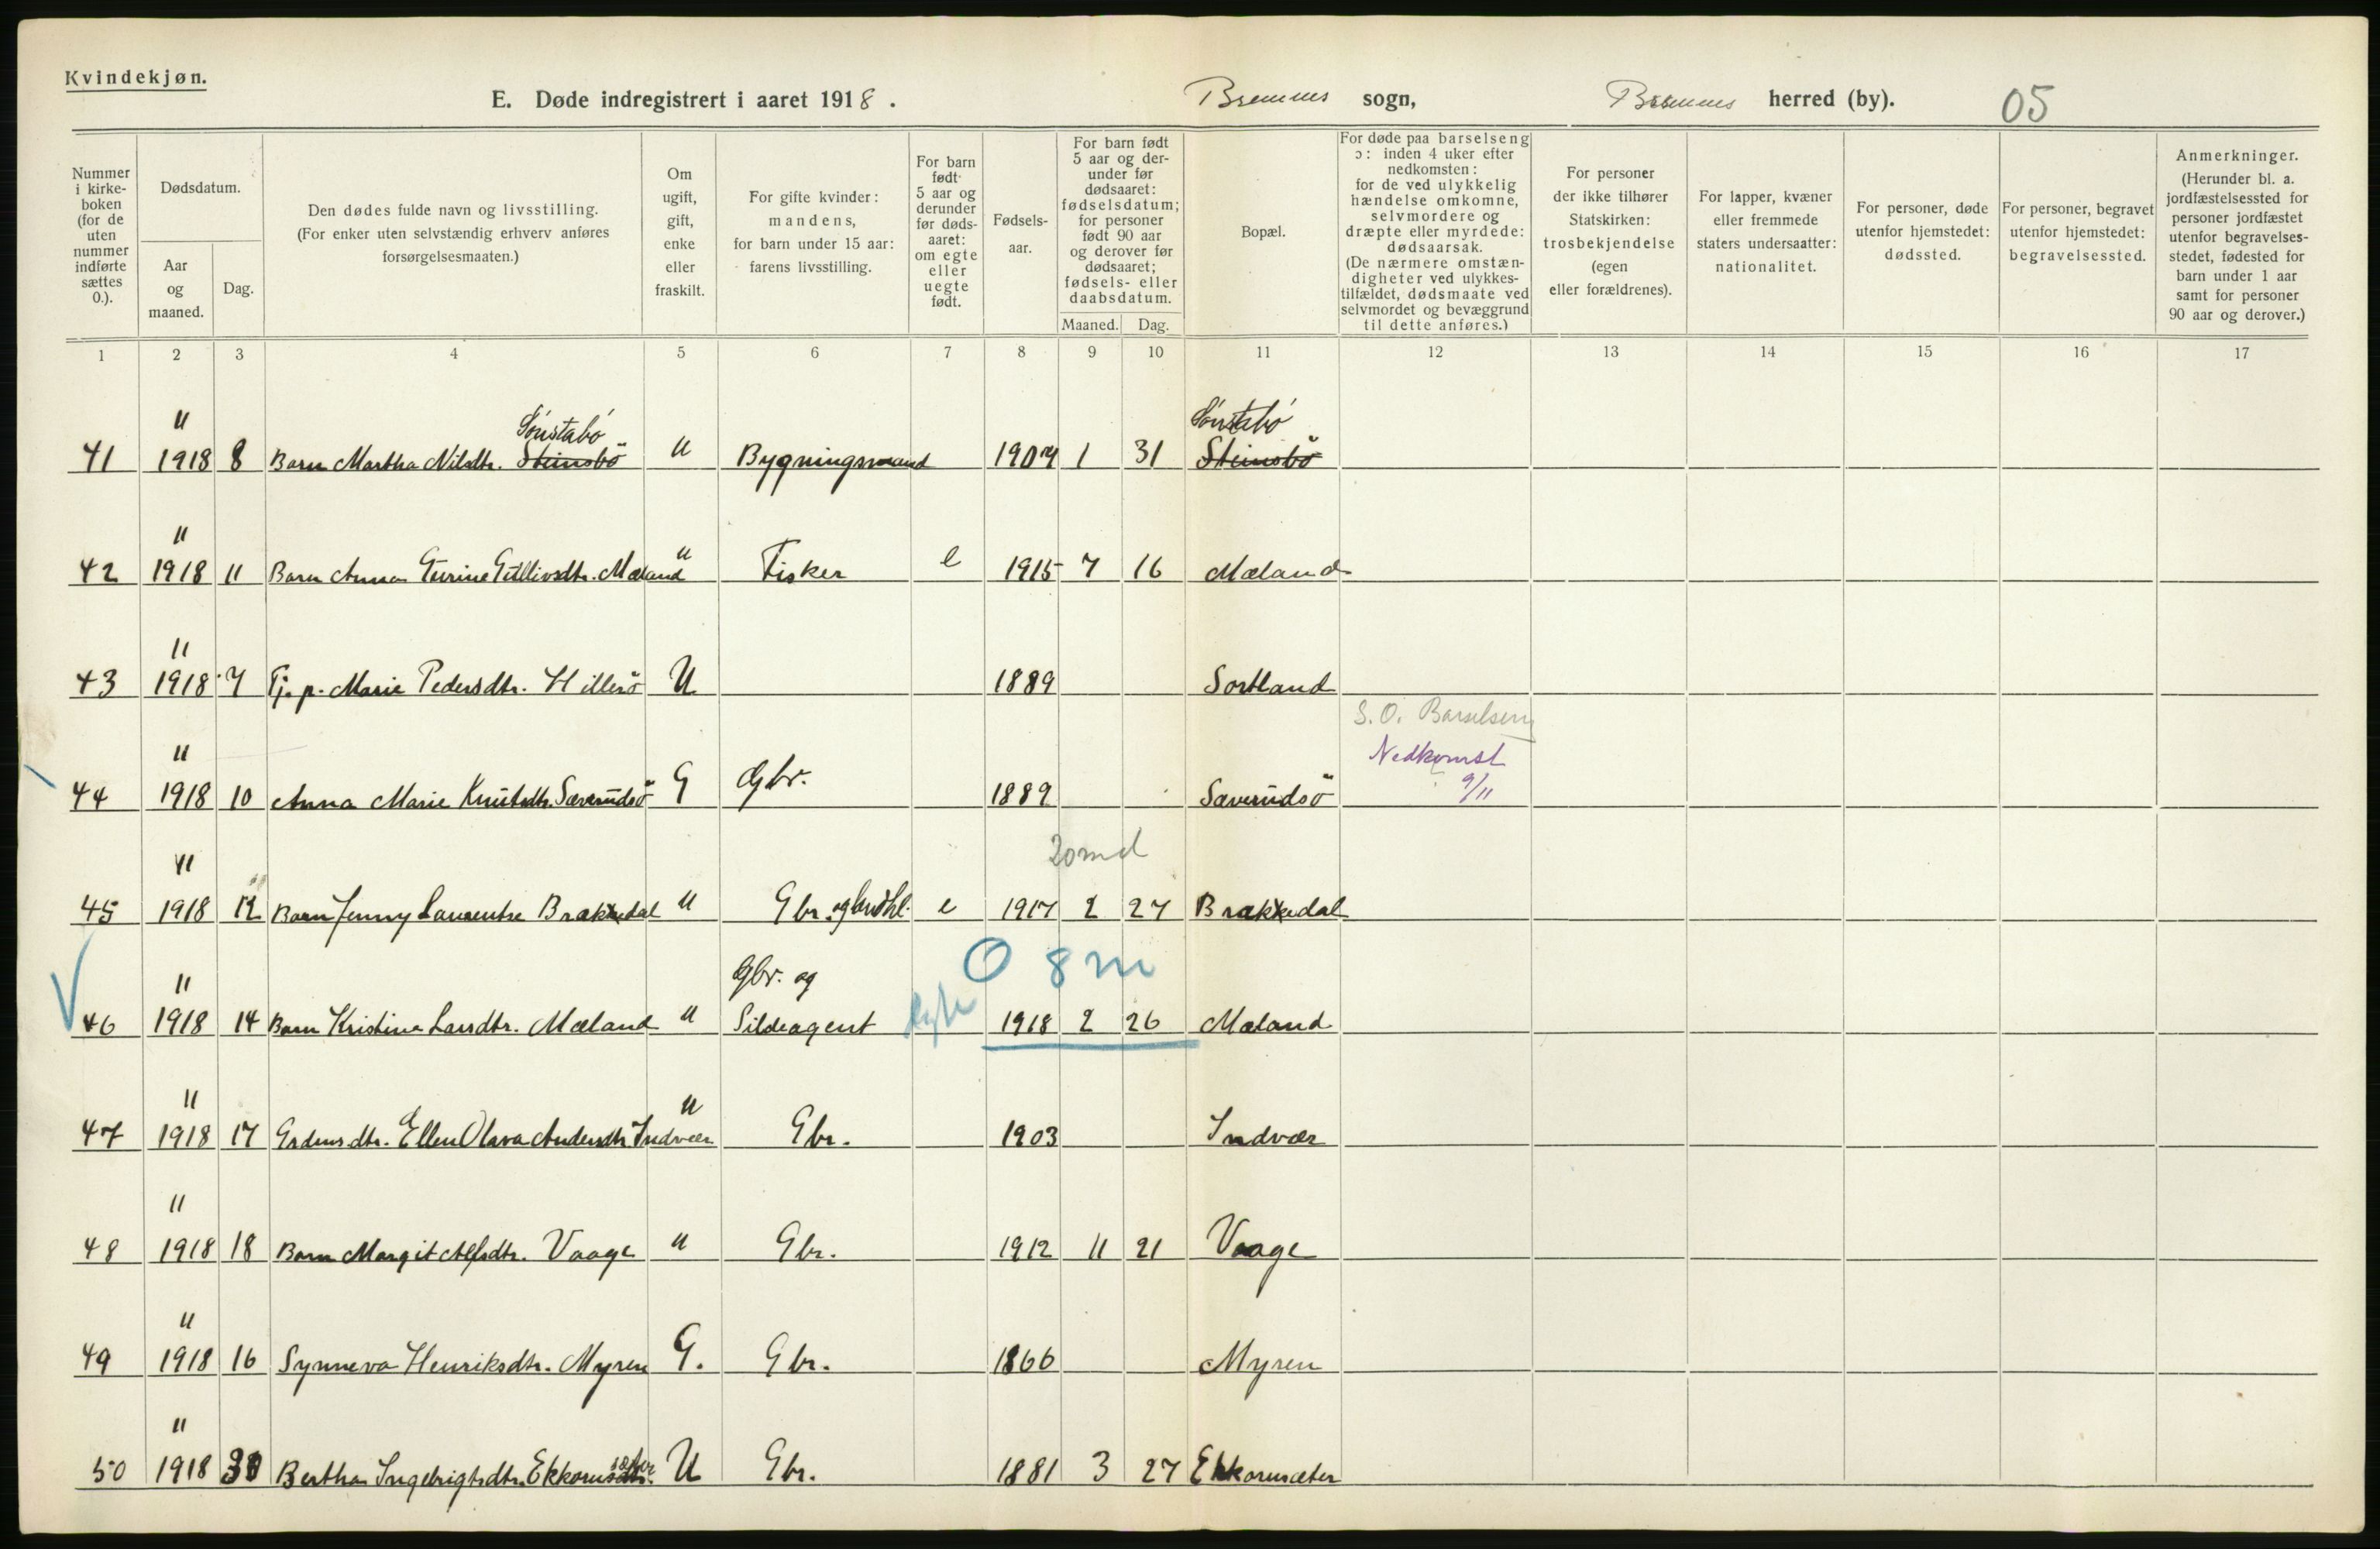 Kvindekjøn.
E. Døde indregistrert i aaret 1918. Bremnes sogn, Bremnes herred (by). 05
Nummer i kirkeboken (for de uten nummer indførte sættes 0.).
Dødsdatum.
Aar og maaned.
Dag.
Den dødes fulde navn og livsstilling.
(For enker uten selvstændig erhverv anføres forsørgelsesmaaten.)
Om ugift, gift, enke eller fraskilt.
For gifte kvinder: mandens, for barn under 15 aar: farens livsstilling.
For barn født 5 aar og derunder før dødsaaret: om egte eller uegte født.
Fødselsaar.
For barn født 5 aar og derunder før dødsaaret: fødselsdatum; for personer født 90 aar og derover før dødsaaret; fødsels- eller daabsdatum.
Maaned. Dag.
Bopæl.
For døde paa barselseng ɔ: inden 4 uker efter nedkomsten: for de ved ulykkelig hændelse omkomne, selvmordere og dræpte eller myrdede: dødsaarsak. (De nærmere omstændigheter ved ulykkestilfældet, dødsmaate ved selvmordet og bevæggrund til dette anføres.)
For personer der ikke tilhører Statskirken: trosbekjendelse (egen eller forældrenes).
For lapper, kvæner eller fremmede staters undersaatter: nationalitet.
For personer, døde utenfor hjemstedet: dødssted.
For personer, begravet utenfor hjemstedet: begravelsessted.
Anmerkninger. (Herunder bl. a. jordfæstelsessted for personer jordfæstet utenfor begravelsesstedet, fødested for barn under 1 aar samt for personer 90 aar og derover.)
1 2 3 4 5 6 7 8 9 10 11 12 13 14 15 16 17
11 Sönstabö Sönstabö
41 1918 8 Barn Martha Nilsdtr. Steinsbö u Bygningsmand 1907 1 31 Steinsbö
11
42 1918 11 Barn Anna Gurine Gitlivsdtr. Mæland u Fisker e 1915 7 16 Mæland
11
43 1918 7 Tj. p. Marie Pedersdtr. Hillesö U 1889 Sortland
S. O. Barselseng
11 Nedkomst
44 1918 10 Anna Marie Knutsdtr. Sæverudsö G Gbr. 1889 Sæverudsö 9/11
11 20 md
45 1918 12 Barn Jenny Laurentse Brakkedal u Gbr. og e 1917 2 27 Brakkedal
11 Gbr. og 0 8 m
46 1918 14 Barn Kristine Larsdtr. Mæland u Sildeagent 1918 2 26 Mæland
11
47 1918 17 Grdmsdtr. Ellen Olava Andersdtr Indvær u Gbr. 1903 Indvær
11
48 1918 18 Barn Margit Alfsdtr. Vaage u Gbr. 1912 11 21 Vaage
11
49 1918 16 Synneva Henriksdtr. Myren G. Gbr. 1866 Myren
11
50 1918 30 Bertha Ingebrigtsdtr. Ekkornsæter U Gbr. 1881 3 27 Ekkornsæter